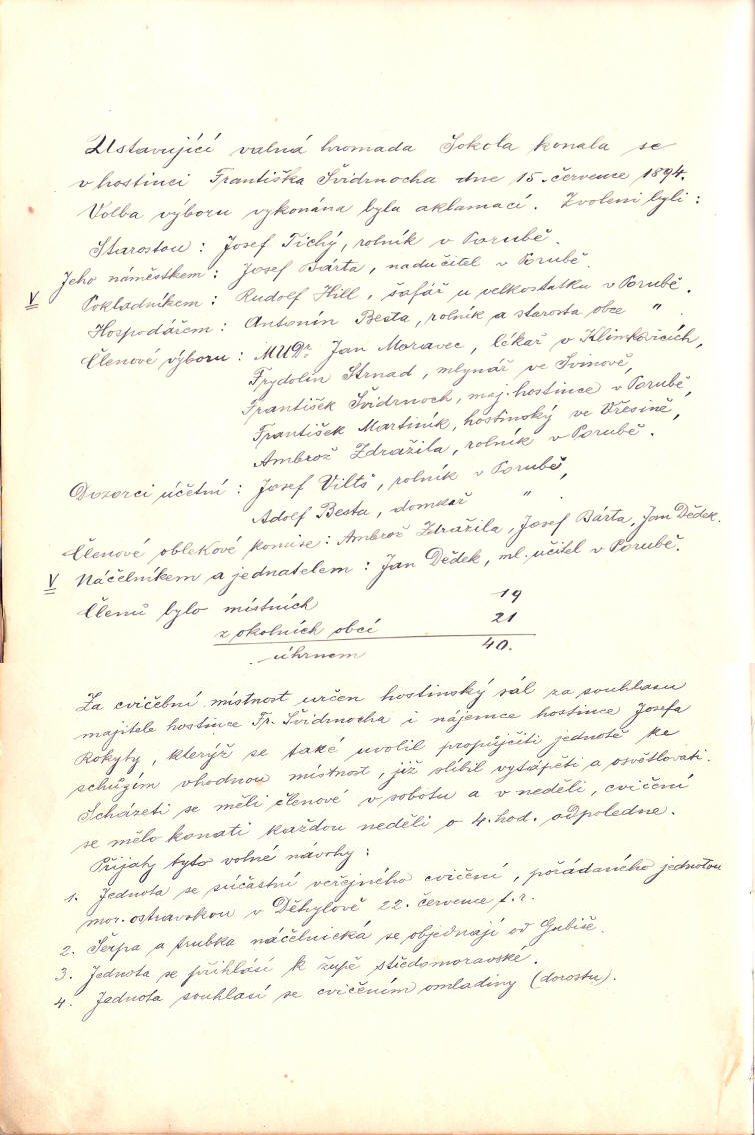 Ustavující valná hromada Sokola konala se
v hostinci Františka Švidrnocha dne 15. července 1894.
Volba výboru vykonána byla aklamací. Zvoleni byli:
Starostou: Josef Tichý, rolník v Porubě.
Jeho náměstkem: Josef Bárta, nadučitel v Porubě.
V Pokladníkem: Rudolf Hill, šafář u velkostatku v Porubě.
Hospodářem: Antonín Besta, rolník a starosta obce ".
Členové výboru: MUDr Jan Moravec, lékař v Klimkovicích,
Frydolín Strnad, mlynář ve Svinově,
František Švidrnoch, maj. hostince v Porubě,
František Martiník, hostinský ve Vřesině,
Ambrož Zdražila, rolník v Porubě.
Dozorci účetní: Josef Vilts, rolník v Porubě,
Adolf Besta, domkař " .
Členové oblekové komise: Ambrož Zdražila, Josef Bárta, Jan Dědek.
V Náčelníkem a jednatelem: Jan Dědek, ml. učitel v Porubě.
Členů bylo místních 19
z okolních obcí 21
úhrnem 40.
Za cvičební místnost určen hostinský sál za souhlasu
majitele hostince Fr. Švidrnocha i nájemce hostince Josefa
Rokyty, kterýž se také uvolil propůjčiti jednotě ke
schůzím vhodnou místnost, již slíbil vytápěti a osvětlovati.
Scházeti se měli členové v sobotu a v neděli, cvičení
se mělo konati každou neděli o 4. hod. odpoledne.
Přijaty tyto volné návrhy:
1. Jednota se súčastní veřejného cvičení, pořádaného jednotou
mor. ostravskou v Děhylově 22. července t. r.
2. Šerpa a trubka náčelnická se objednají od Gubiše.
3. Jednota se přihlásí k župě středomoravské.
4. Jednota souhlasí se cvičením omladiny (dorostu).